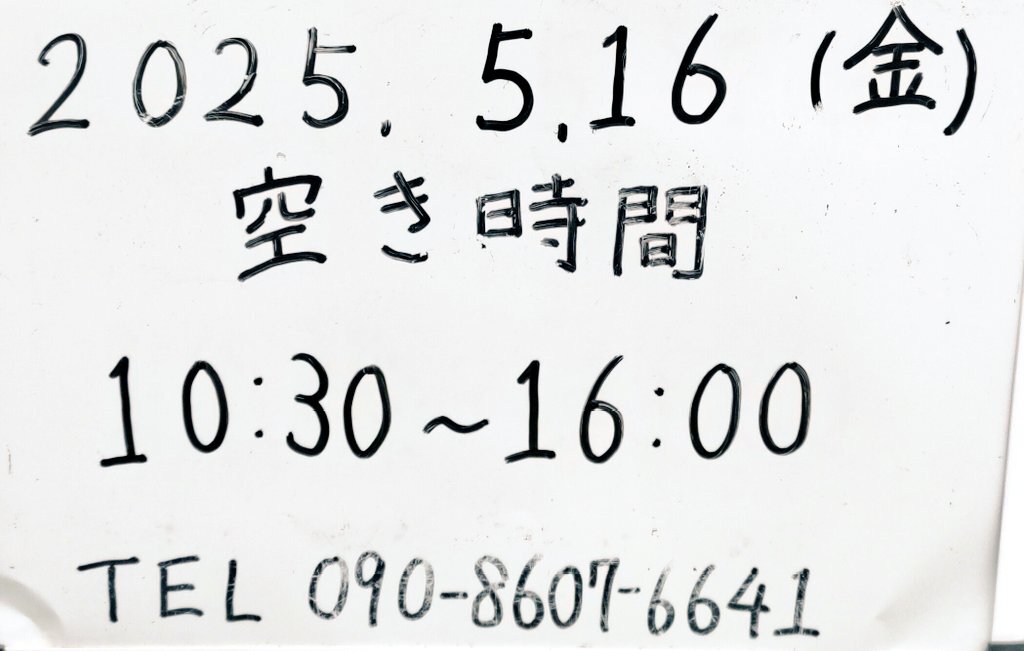 2025.5.16(金)
空き時間
10:30~16:00
TEL 090-8607-6641